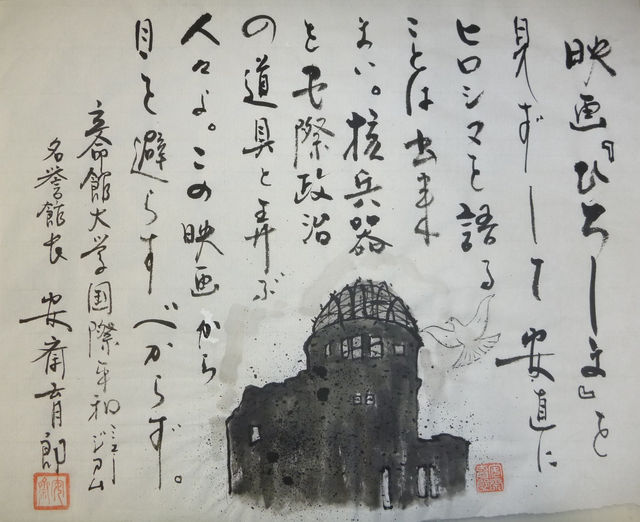 映画『ひろしま』を
見ずして安直に
ヒロシマを語る
ことは出来
まい。核兵器
を国際政治
の道具と弄ぶ
人々よ。この映画から
目を避らすべからず。
立命館大学国際平和ミュージアム
名誉館長 安斎育郎